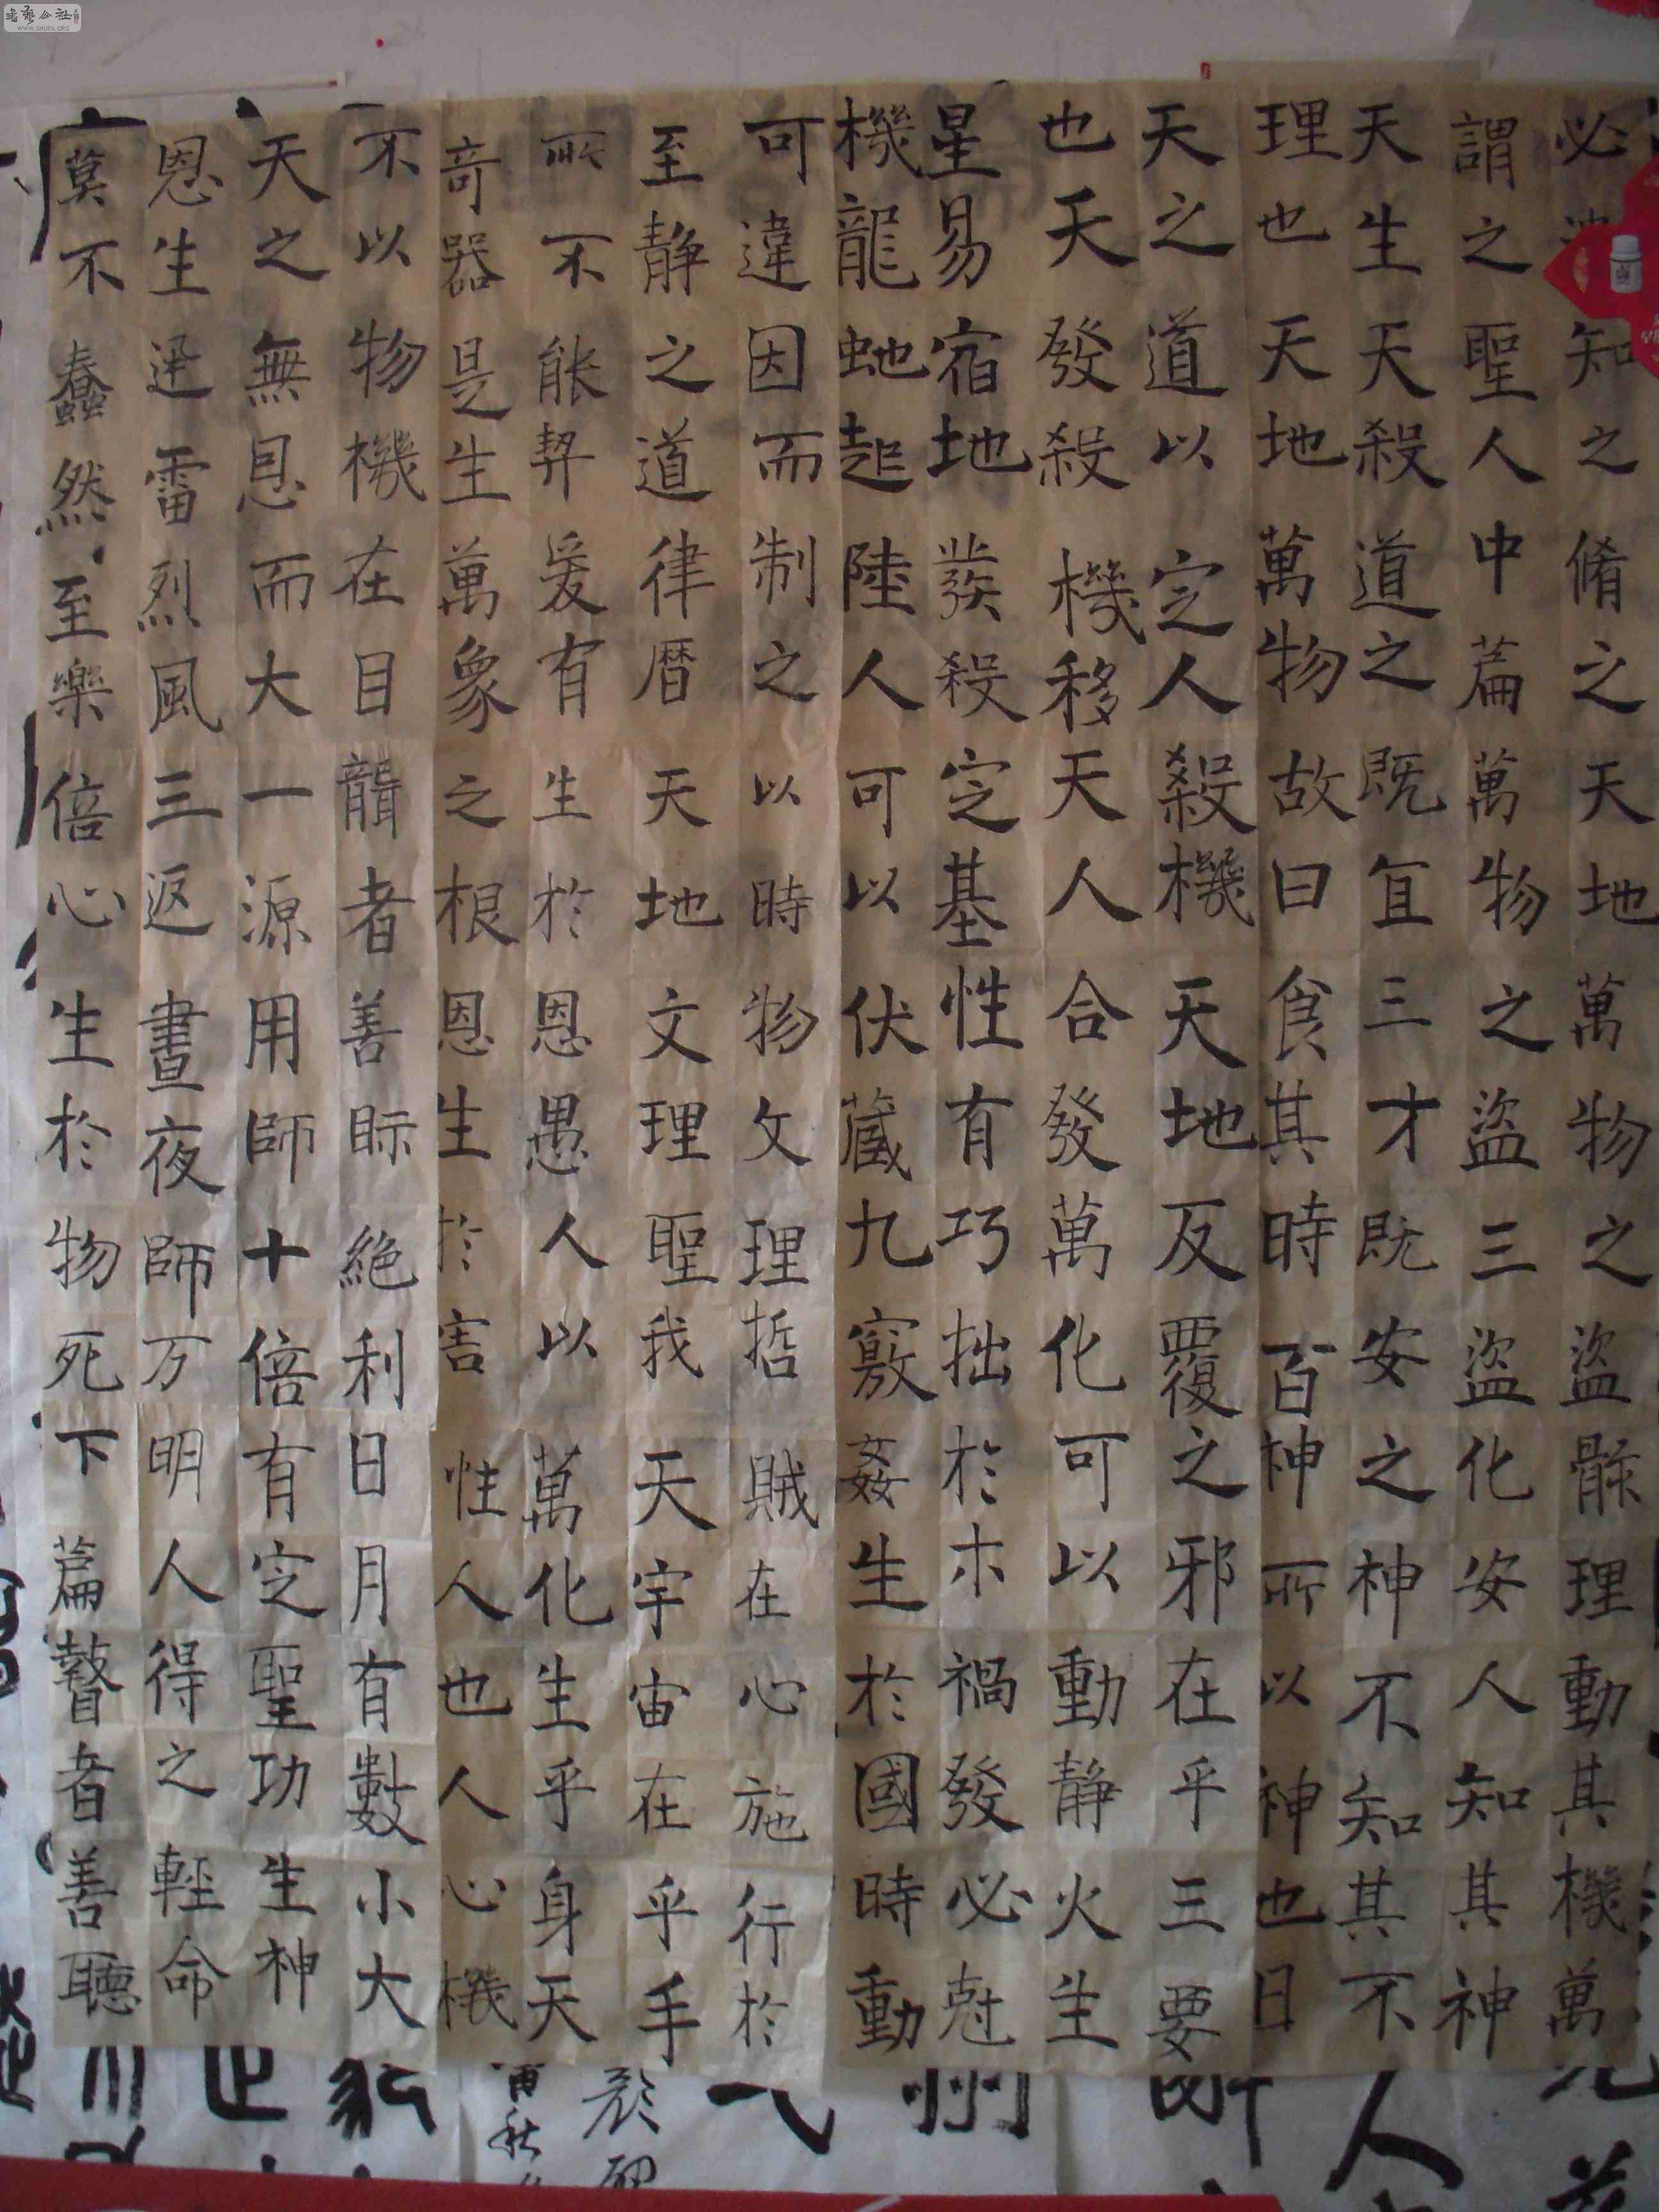 必知之脩之天地萬物之盜骸理動其機萬
謂之聖人中篇萬物之盜三盜化安人知其神
天生天殺道之既宜三才既安之神不知其不
理也天地萬物故曰食其時百神所以神也日
天之道以定人殺機天地反覆之邪在乎三要
也天發殺機移天人合發萬化可以動靜火生
星易宿地發殺定基性有巧拙於木禍發必尅
機龍虵起陸人可以伏藏九竅姦生於國時動
可違因而制之以時物文理哲賊在心施行於
至静之道律曆天地文理聖我天宇宙在乎手
所不能契爰有生於恩愚人以萬化生乎身天
竒器是生萬象之根恩生於害性人也人心機
不以物機在目聾者善眎絶利日月有數小大
天之無恩而大一源用師十倍有定聖功生神
恩生迅雷烈風三返晝夜師万明人得之輕命
莫不蠢然至樂倍心生於物死下篇瞽者善聽
書法公社
WWW.SHUFA.ORG